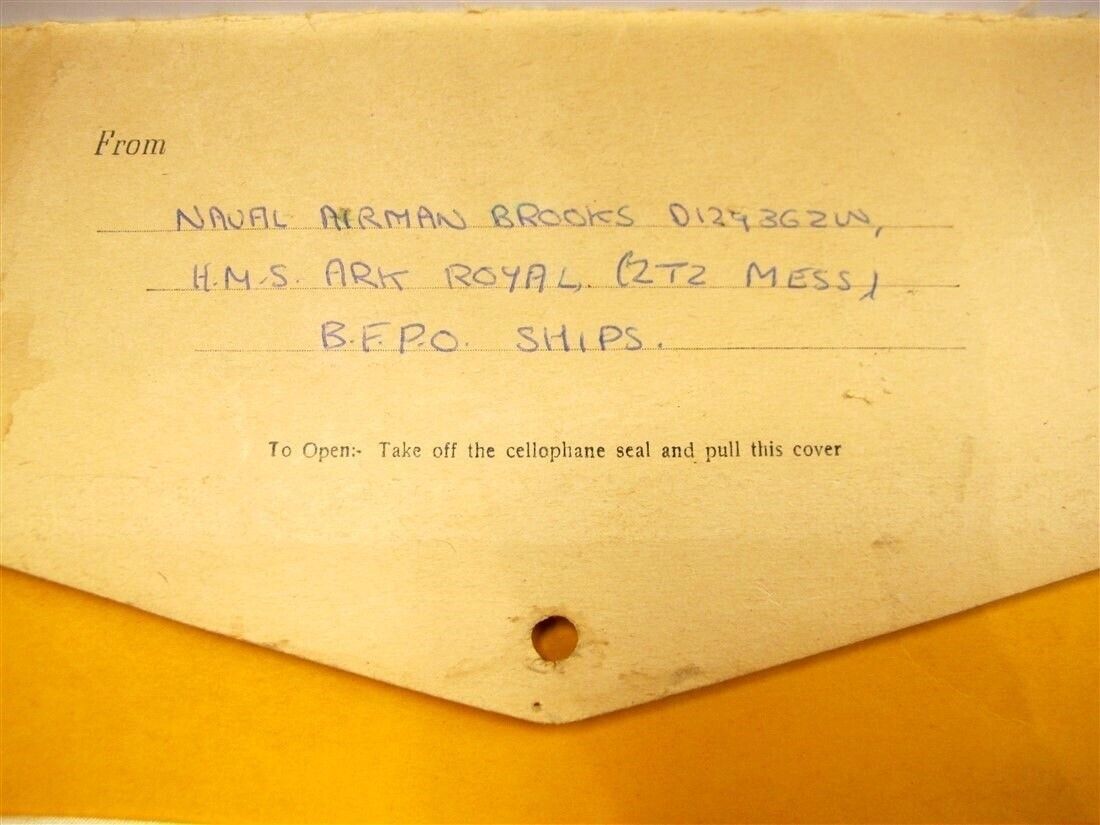 From
NAVAL AIRMAN BROOKS D129362W,
H.M.S. ARK ROYAL, (2T2 MESS)
B.F.P.O. SHIPS.
To Open:- Take off the cellophane seal and pull this cover